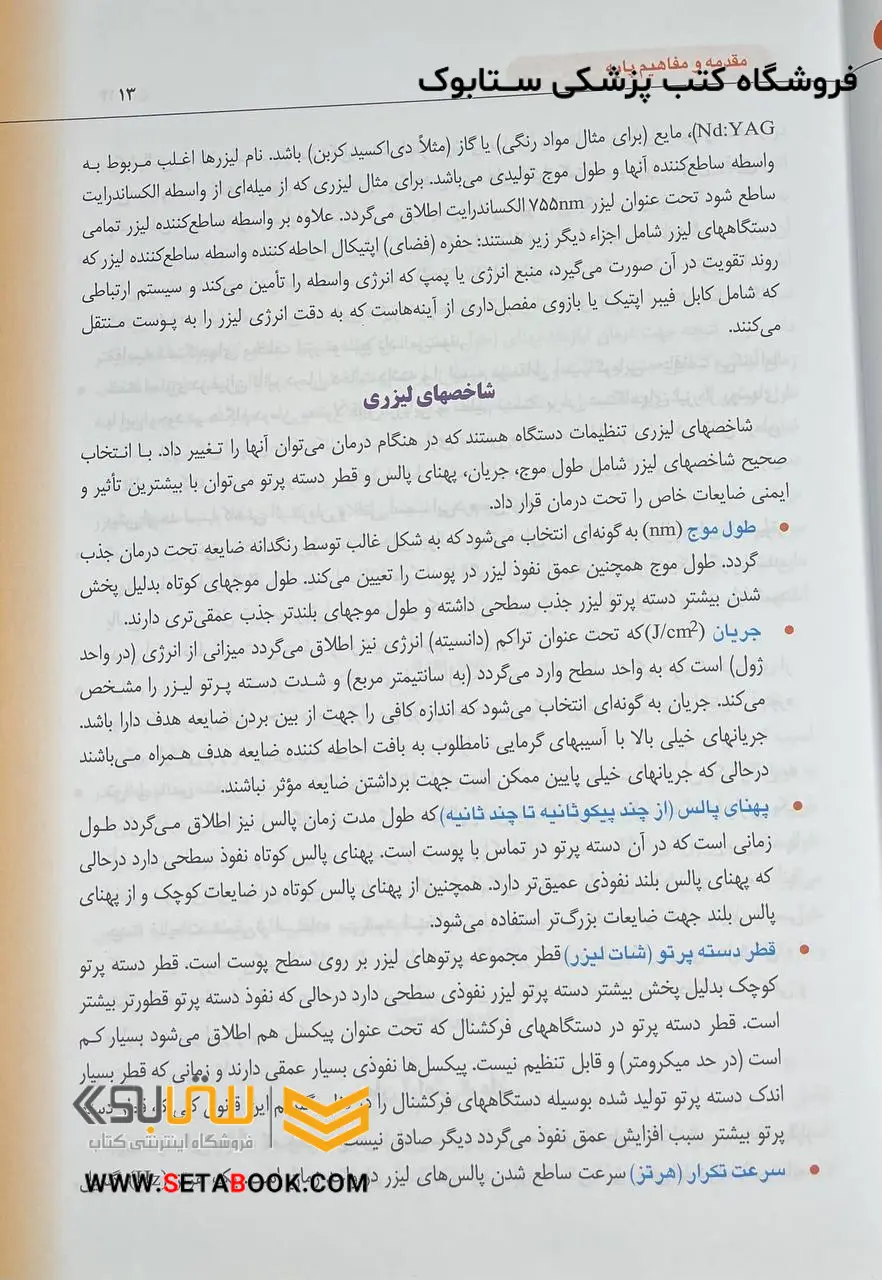 مقدمه و مفاهیم پایه
فروشگاه کتب پزشکی ستابوک
۱۳
Nd:YAG)، مایع (برای مثال مواد رنگی) یا گاز (مثلاً دی‌اکسید کربن) باشد. نام لیزرها اغلب مربوط به
واسطه ساطع‌کننده آنها و طول موج تولیدی می‌باشد. برای مثال لیزری که از میله‌ای از واسطه الکساندرایت
ساطع شود تحت عنوان لیزر ۷۵۵nm الکساندرایت اطلاق می‌گردد. علاوه بر واسطه ساطع‌کننده لیزر تمامی
دستگاههای لیزر شامل اجزاء دیگر زیر هستند: حفره (فضای) اپتیکال احاطه کننده واسطه ساطع‌کننده لیزر که
روند تقویت در آن صورت می‌گیرد، منبع انرژی یا پمپ که انرژی واسطه را تأمین می‌کند و سیستم ارتباطی
که شامل کابل فیبر اپتیک یا بازوی مفصل‌داری از آینه‌هاست که به دقت انرژی لیزر را به پوست منتقل
می‌کنند.
شاخصهای لیزری
شاخصهای لیزری تنظیمات دستگاه هستند که در هنگام درمان می‌توان آنها را تغییر داد. با انتخاب
صحیح شاخصهای لیزر شامل طول موج، جریان، پهنای پالس و قطر دسته پرتو می‌توان با بیشترین تأثیر و
ایمنی ضایعات خاص را تحت درمان قرار داد.
• طول موج (nm) به گونه‌ای انتخاب می‌شود که به شکل غالب توسط رنگدانه ضایعه تحت درمان جذب
گردد. طول موج همچنین عمق نفوذ لیزر در پوست را تعیین می‌کند. طول موجهای کوتاه بدلیل پخش
شدن بیشتر دسته پرتو لیزر جذب سطحی داشته و طول موجهای بلندتر جذب عمقی‌تری دارند.
• جریان (J/cm²) که تحت عنوان تراکم (دانسیته) انرژی نیز اطلاق می‌گردد میزانی از انرژی (در واحد
ژول) است که به واحد سطح وارد می‌گردد (به سانتیمتر مربع) و شدت دسته پرتو لیزر را مشخص
می‌کند. جریان به گونه‌ای انتخاب می‌شود که اندازه کافی را جهت از بین بردن ضایعه هدف دارا باشد.
جریانهای خیلی بالا با آسیبهای گرمایی نامطلوب به بافت احاطه کننده ضایعه هدف همراه می‌باشند
درحالی که جریانهای خیلی پایین ممکن است جهت برداشتن ضایعه مؤثر نباشند.
• پهنای پالس (از چند پیکو ثانیه تا چند ثانیه) که طول مدت زمان پالس نیز اطلاق می‌گردد طول
زمانی است که در آن دسته پرتو در تماس با پوست است. پهنای پالس کوتاه نفوذ سطحی دارد درحالی
که پهنای پالس بلند نفوذی عمیق‌تر دارد. همچنین از پهنای پالس کوتاه در ضایعات کوچک و از پهنای
پالس بلند جهت ضایعات بزرگ‌تر استفاده می‌شود.
• قطر دسته پرتو (شات لیزر) قطر مجموعه پرتوهای لیزر بر روی سطح پوست است. قطر دسته پرتو
کوچک بدلیل پخش بیشتر دسته پرتو لیزر نفوذی سطحی دارد درحالی که نفوذ دسته پرتو قطورتر بیشتر
است. قطر دسته پرتو در دستگاههای فرکشنال که تحت عنوان پیکسل هم اطلاق می‌شود بسیار کم
است (در حد میکرومتر) و قابل تنظیم نیست. پیکسل‌ها نفوذی بسیار عمقی دارند و زمانی که قطر بسیار
اندک دسته پرتو تولید شده بوسیله دستگاههای فرکشنال را در این قانون کلی که
پرتو بیشتر سبب افزایش عمق نفوذ می‌گردد دیگر صادق نیست
• سرعت تکرار (هرتز) سرعت ساطع شدن پالس‌های لیزر در
ستابوک
فروشگاه اینترنتی کتاب
WWW.SETABOOK.COM